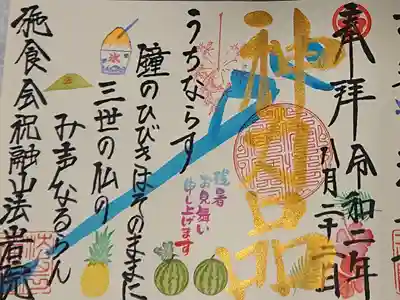 奉拝 令和二年
八月二十二日
神
うちならす
鐘のひびきはそのままに
三世の仏の
み声なるらん
残暑
お見舞い
申し上げます
氷
施食会祝融山法岩院